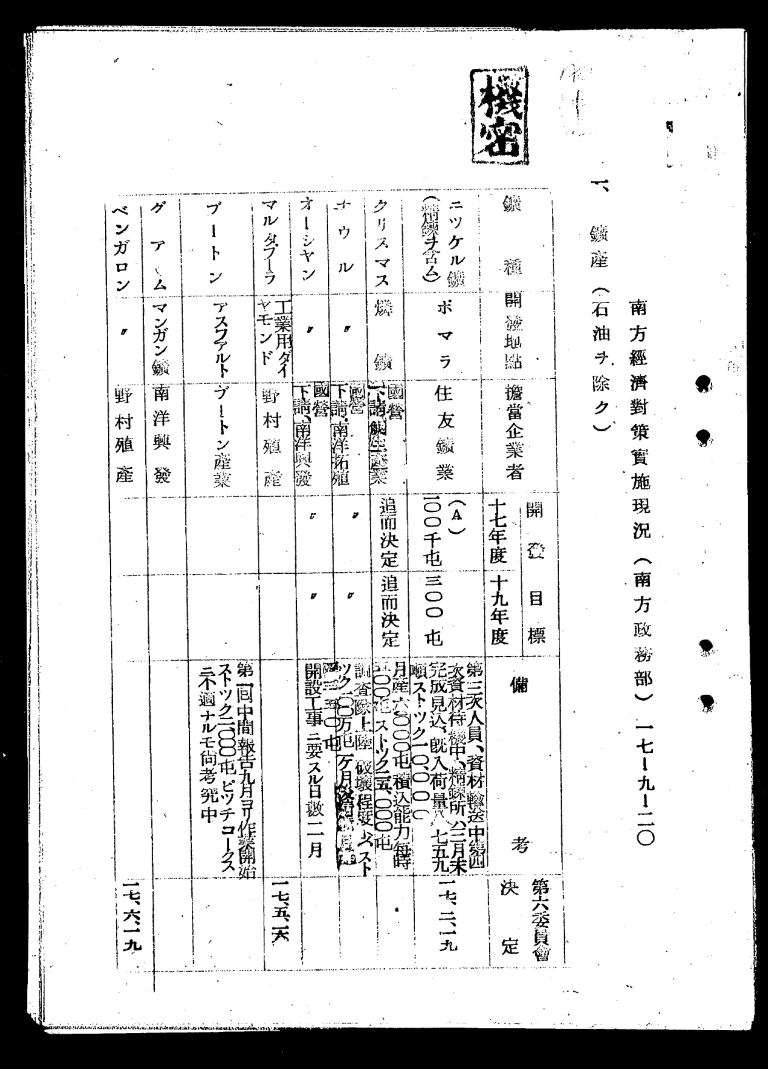 機密
南方經濟對策實施現況（南方政務部）一七—九—二〇
一、鑛産（石油ヲ除ク）
鑛種
開發地點
擔當企業者
開發目標
十七年度
十九年度
備考
第六委員會
決定
ニツケル鑛
（精錬ヲ含ム）
ポマラ
住友鑛業
（A）
三〇〇屯
第三次人員、資材輸送中第四
次資材待機中、精錬所ハ三月末
完成見込、既入荷量八、七五九
噸ストツク一〇、〇〇〇
一七、二、一九
クリスマス
燐鑛
國營
追而決定
追而決定
月産六〇〇〇屯積込能力毎時
ストツク一五、〇〇〇屯
ナウル
〃
國營
下請、南洋拓殖
〃
〃
調査隊上陸 破壞程度少、スト
オーシヤン
〃
國營
下請、南洋興發
〃
〃
開設工事ニ要スル日數二月
マルタプーラ
工業用ダイ
ヤモンド
野村殖産
ブートン
アスフアルト
ブートン産業
第一回中間報告九月ヨリ作業開始
ストツク二、〇〇〇屯ピツチコークス
ニ不適ナルモ尚考究中
グアム
マンガン鑛
南洋興發
ベンガロン
〃
野村殖産
一七、六、一九